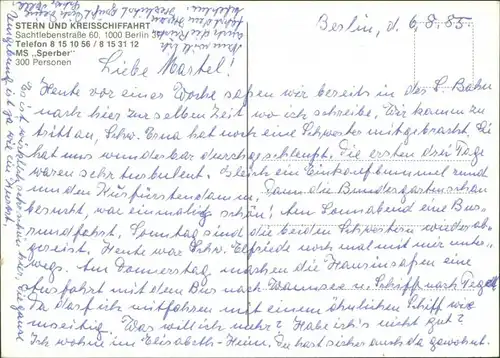 STERN UND KREISSCHIFFAHRT
Sachtlebenstraße 60, 1000 Berlin 37
Telefon 8 15 10 56 / 8 15 31 12
MS „Sperber"
300 Personen
Berlin, d. 6.8.85
Liebe Martel!
Heute vor einer Woche saßen wir bereits in der S. Bahn
nach hier zur selben Zeit wo ich schreibe. Wir kamen zu
dritt an, Schw. Erna hat noch eine Schwester mitgebracht. Sie
hat uns wunderbar durchgeschleußt. Die ersten drei Tage
waren sehr turbulent. Gleich ein Einkaufbummel rund
um den Kurfürstendamm. Dann die Bundesgartenschau
besucht, war einmalig schön! Am Sonnabend eine Bus-
rundfahrt. Sonntag sind die beiden Schwestern wieder ab-
gereist. Heute war Schw. Elfriede noch mal mit mir unter-
wegs. Am Donnerstag machen die Hausinsaßen eine
Busfahrt mit dem Bus nach Wannsee u. Schiff nach Tegel
Da darf ich mitfahren mit einem ähnlichen Schiff wie
umseitig. Was will ich mehr? Habe ich's nicht gut?
Ich wohne im Elisabeth-Heim. Du hast sicher auch da gewohnt.
Es ist wirklich schön hier, die ganze
Umgebung ist ja wie ein Park.